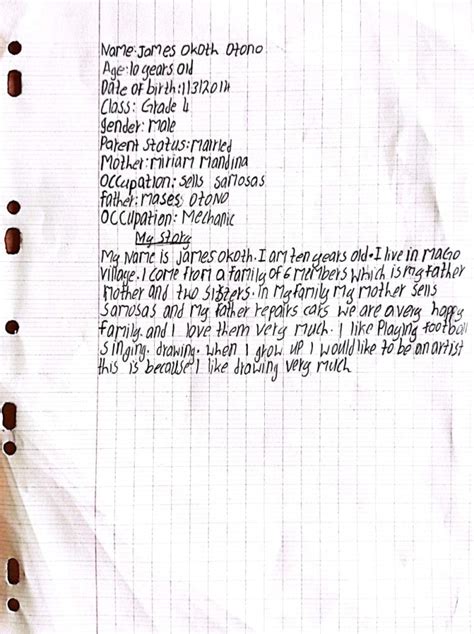 Name: James Okoth Otono
Age: 10 years old
Date of birth: 11312014
Class: Grade 4
Gender: Male
Parent Status: Married
Mother: Miriam Mandina
Occupation: sells samosas
Father: Mases Otono
Occupation: Mechanic
My Story
My Name is James Okoth. I am ten years old. I live in Mago
village. I come from a family of 6 members which is my father
mother and two sisters. in my family my mother sells
samosas and my father repairs cars we are a very happy
family. and I love them very much. I like playing football
singing. drawing. when I grow up I would like to be an artist
this is because I like drawing very much